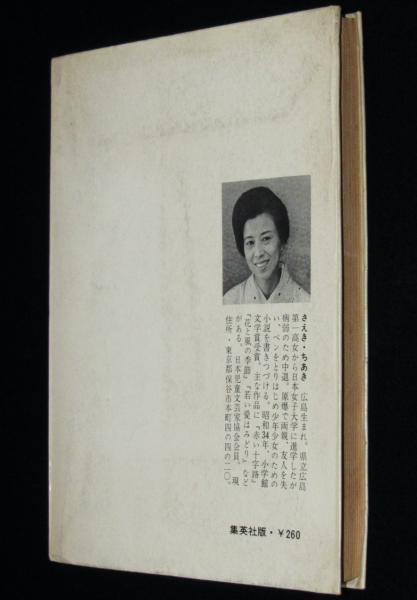 さえき・ちあき　広島生まれ。県立広島
第一高女から日本女子大学に進学したが
病弱のため中退。原爆で両親、友人を失
い、ペンをとりはじめ少年少女のための
小説を書きつづける。昭和34年、小学館
文学賞受賞。主な作品に『赤い十字路』
『花と風の季節』『若い愛はみどり』など
がある。日本児童文芸家協会会員。現
住所・東京都保谷市本町四の四の二〇。
集英社版・￥260